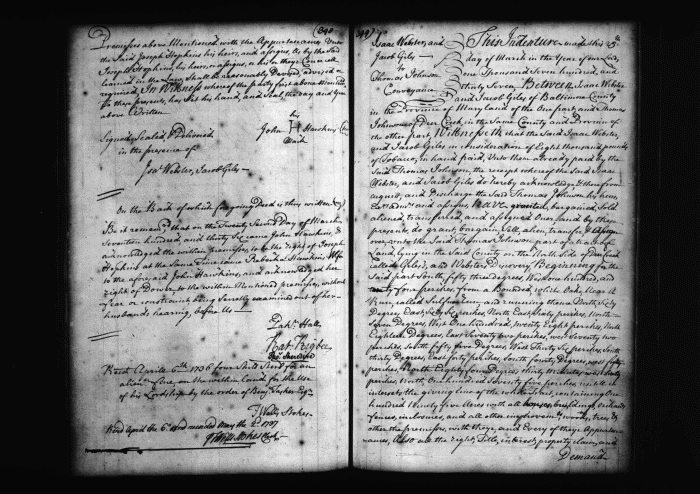 340
Premises above Mentioned with the Appurtenances Unto
the Said Joseph Hopkins his heirs, and assigns, as by the Said
Joseph Hopkins, his heirs, or assigns, or his or theyr Councell
Learned in the Law Shall be reasonably Devised advised or
required. In Witness whereof the party first above Mentioned
to these presents, has Set his hand, and Seal, the day and Year
above Written
Signed Sealed & Delivered
in the presence of
his
John H Hawkins
Mark
Isa. Webster, Jacob Giles
On the Back of which foregoing Deed is thus written (Viz)
Be it remembred that on the Twenty Second Day of March
Seventeen hundred, and thirty Six came John Hawkins, &
acknowledged the within premises, to be the right of Joseph
Hopkins at the Same Time came Rebecka Hawkins Wife
to the aforesaid John Hawkins, and acknowledged her
right of Dower to the within Mentioned premises, without
fear or constraint being Secretly examined out of her
husbands hearing, before Us
Zab. Hall
Nat. Rigbee
Recd April 6th 1736 four Shill Sterl for an
alien on the within Land for the Use
of his Lordship by the order of Benj Tasker Esq
Will Stokes
Recd April the 6 and recorded May the 2d 1737
Will Stokes Clk
Isaac Webster, and
Jacob Giles
To
Thomas Johnson
Conveyance
This Indenture made this 25th
day of March in the Year of our Lord,
One Thousand Seven hundred, and
thirty Seven Between Isaac Webster
and Jacob Giles of Baltimore County
in the Province of Maryland of the One part, and Thomas
Johnson of Deer Creek, in the Same County and Province of
the other part, Witnesseth that the Said Isaac Webster,
and Jacob Giles in Consideration of Eight thousand pounds
of Tobacco, in hand paid, Unto them already paid by the
Said Thomas Johnson, the receipt whereof the Said Isaac
Webster, and Jacob Giles do hereby acknowledge & therefrom
acquit, and Discharge the Said Thomas Johnson his heirs
and assigns Have granted, bargained, Sold
aliened, transferred, and assigned Over, and by these
presents, do grant, bargain, Sell, alien, transfer, & Assign
over, unto the Said Thomas Johnson, part of a tract of
Land, lying in the Said County on the North Side of Deer Creek
called Giles's, and Websters Discovery Beginning for the
Said part South, fifty three degrees, West One hundred, and
perches, from a Bounded White Oake, Near a
Run, called Sulphur Run and running thence North, Sixty
Degrees, East, Sixty Six perches, North East, Sixty perches, North
Seven Degrees, West One hundred, twenty Eight perches, North
Eighteen Degrees, East, Seventy two perches, West Seventy two
perches, South, fifty four Degrees, West, thirty Six perches, South
thirty Degrees, East forty perches, South, Seventy Degrees, West fifty
perches, North Eighty four Degrees, thirty Minutes, West Sixty
perches North One hundred Seventy five perches, untill it
intersects the giving line of the whole tract, containing One
hundred Ninety five Acres with all houses, buildings, Orchards
fences, inclosures, and all other improvements, woods, trees, &
other the premisses, with theyr, and Every of theyr Appurte-
nances, Also all the right, Title, interest, property, claim, and
Demand